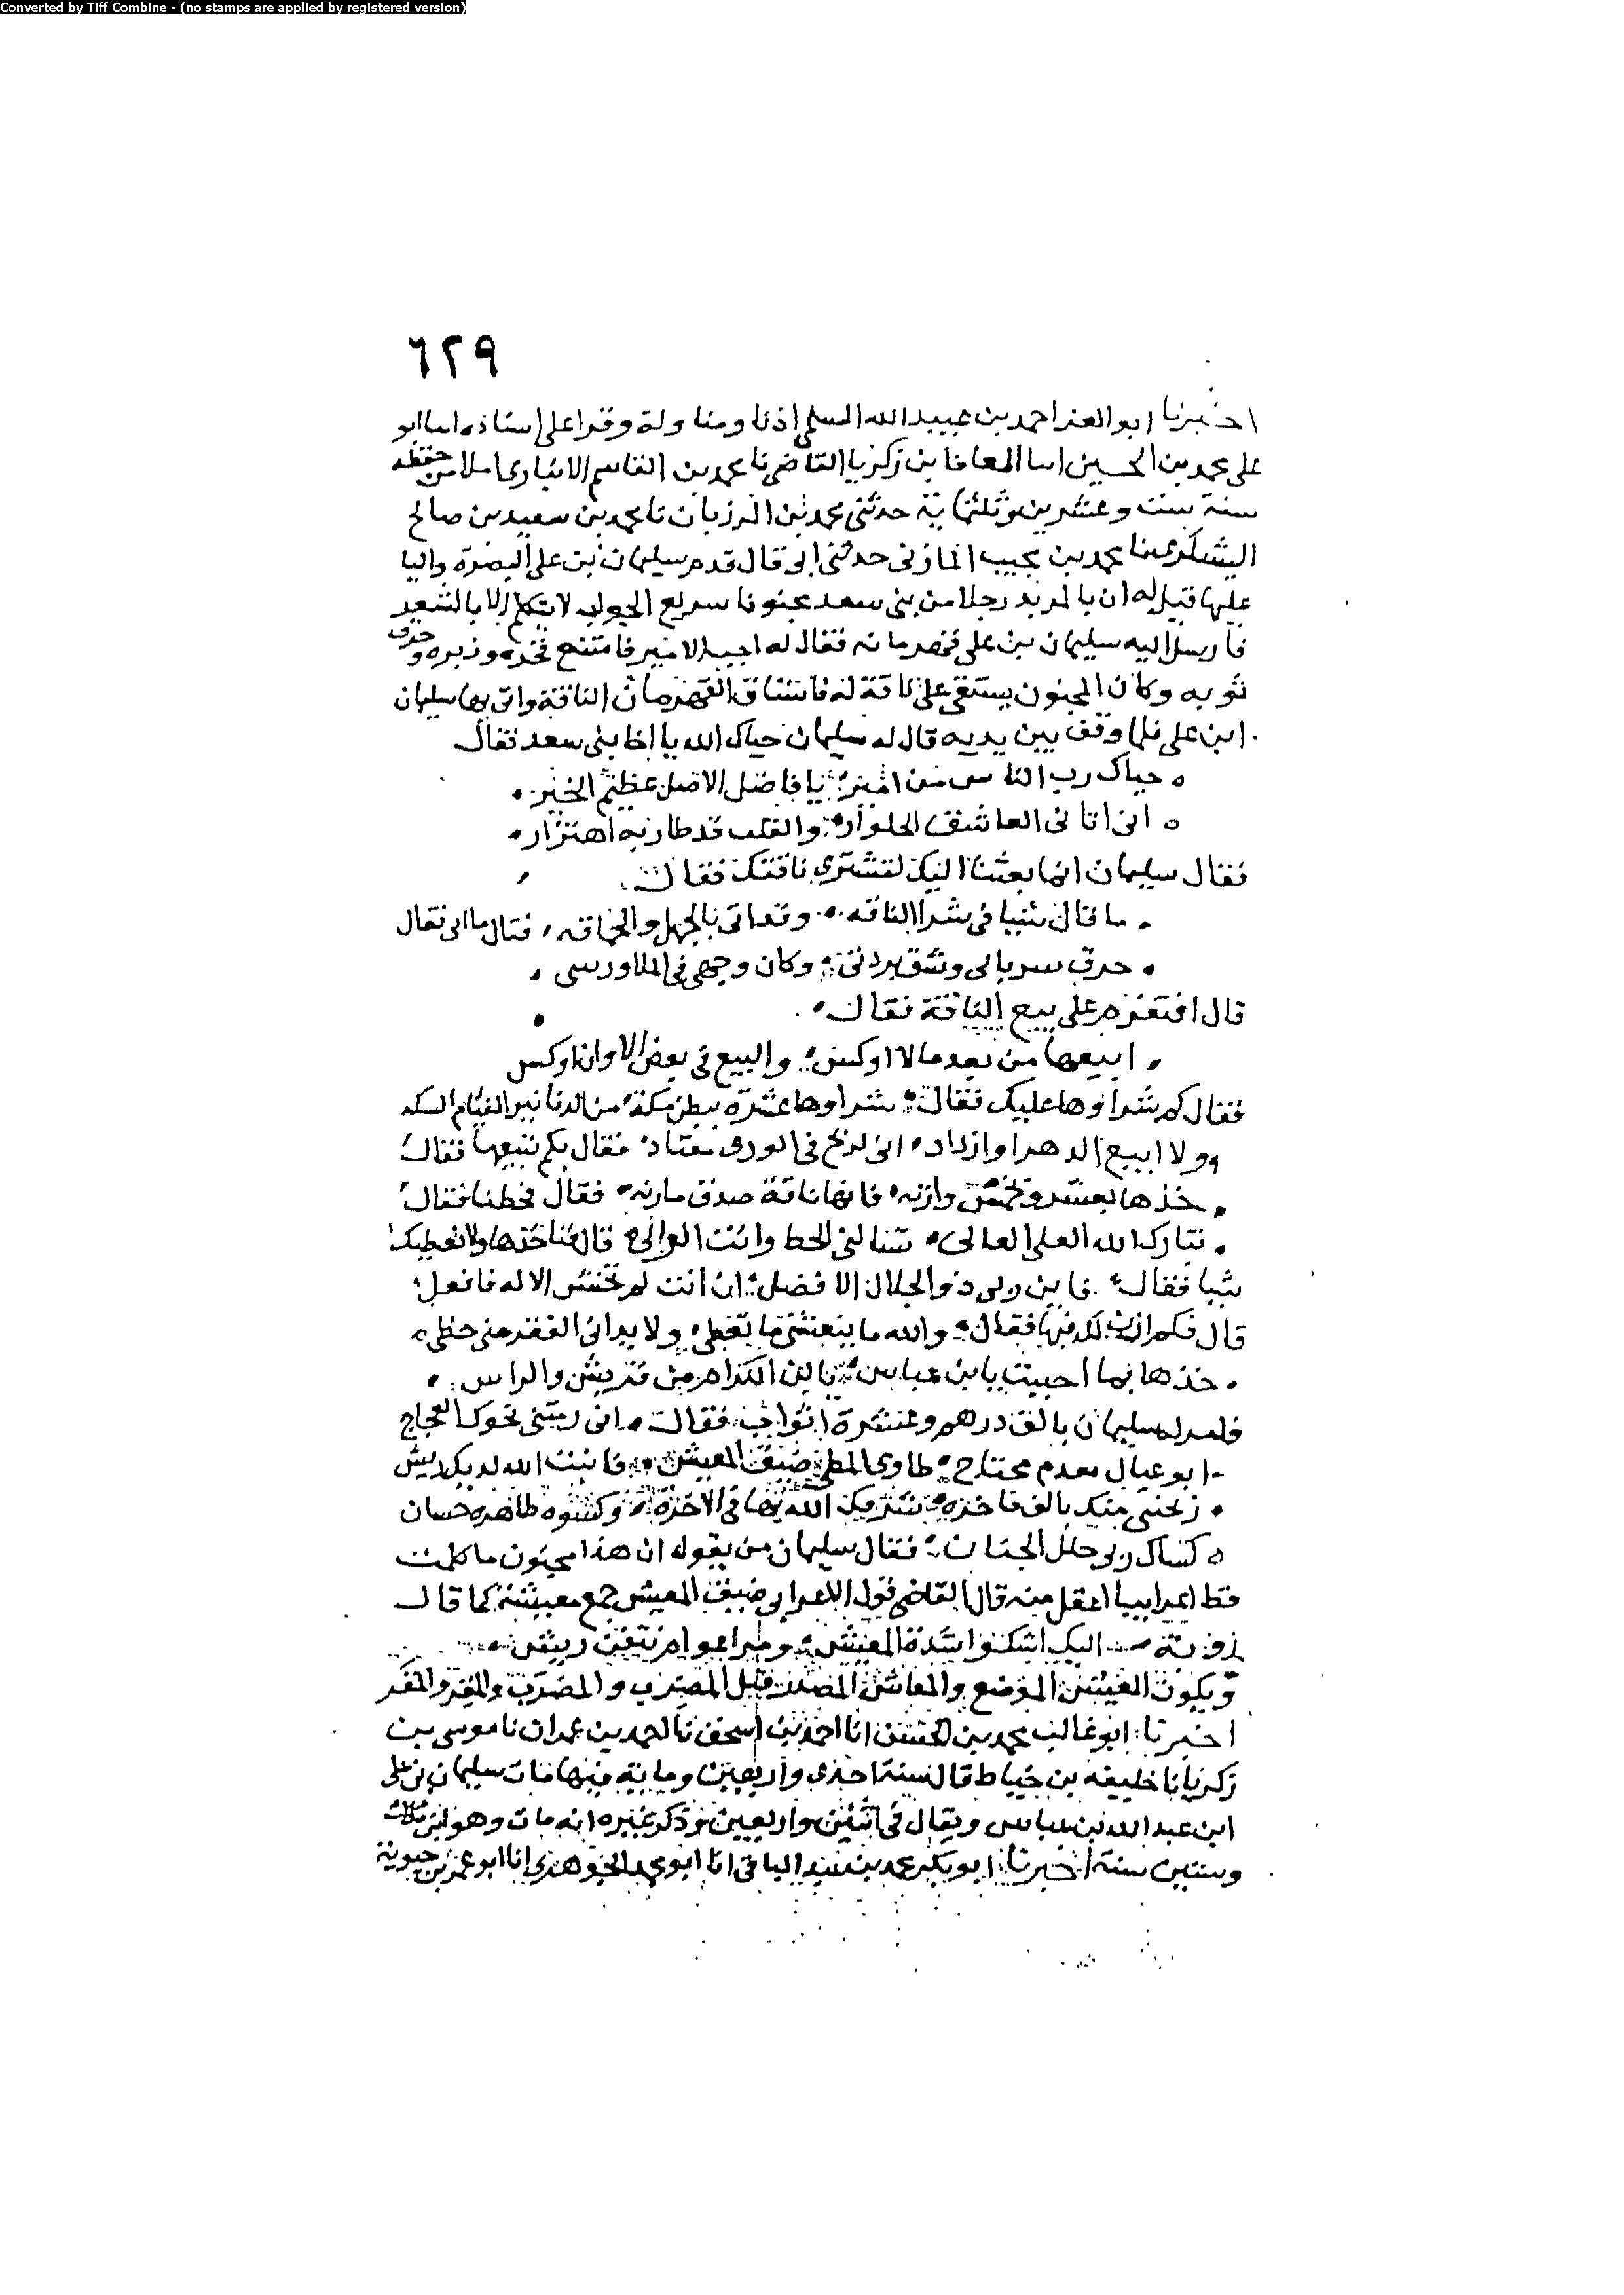 Converted by Tiff Combine - (no stamps are applied by registered version)
٦٢٩
اخبرنا ابو العز احمد بن عبيد الله السلمي اذنا ومناولة وقرا على اسناذه انا ابو
على محمد بن الحسين انا المعافا بن زكريا القاضي نا محمد بن القاسم الانباري املا من حفظه
سنة ست وعشرين وثلثماية حدثني محمد بن المرزبان نا محمد بن سعيد بن صالح
اليشكري نا محمد بن نجيب المازني حدثني ابي قال قدم سليمان بن على البصرة واليا
عليها قيل له ان بالمربد رجلا من بني سعد مجنونا سريع الجواب لا يتكلم الا بالشعر
فارسل اليه سليمان بن على قهرمانه فقال له اجب الامير فامتنع فجره وزبره وخرق
ثوبه وكان المجنون يستقي على ناقة له فاستاق القهرمان الناقة واتى بها سليمان
ابن على فلما وقف بين يديه قال له سليمان حياك الله يا اخا بني سعد فقال
حياك رب الناس من امير يا فاضل الاصل عظيم الخير
اني اتاني العاشق الجلواز والقلب قد طار به اهتزار
فقال سليمان انما بعثنا اليك لنشتري ناقتك فقال
ما قال شيا في شرا الناقه وقد اتى بالجهل والحماقه فقال ما اتى فقال
خرق سربالي وشق بردتي وكان وجهي في الملا ورسي
قال افتعزم على بيع الناقة فقال
ابيعها من بعد ما لا اوكس والبيع في بعض الاوان اوكس
فقال كم شراوها عليك فقال شراوها عشرة ببطن مكة من الدنانير القيام السكه
ولا ابيع الدهر او ازداد اني لربح في الورى معتاد فقال بكم تبيعها فقال
خذها بعشر وخمس وازنه فانها ناقة صدق مارنه فقال فحطنا فقال
تبارك الله العلي العالي تسالني الحط وانت الوالي قال فناخذها ولا نعطيك
شيا فقال فاين ربي ذو الجلال الافضل ان انت لم تخش الاله فافعل
قال فكم ازن لك فيها فقال والله ما ينعشني ما تعطي ولا يداني الفقر مني حظي
خذها بما احببت يا بن عباس يا بن الكرام من قريش والراس
فامر له سليمان بالف درهم وعشرة اثواب فقال اني رمتني نحوك الفجاج
ابو عيال معدم محتاج طاوي المطي ضيق المعيش فانبت الله لديك ريش
زبحتني منك بالف فاخره شرفك الله بها في الاخرة وكسوه طاهره حسان
كساك ربي حلل الجنان فقال سليمان من يقول ان هذا مجنون ما كلمت
قط اعرابيا اعقل منه قال القاضي قول الاعرابي ضيق المعيش جمع معيشة كما قال
روبة اليك اشكوا شدة المعيش ومر اعوام نتفن ريش
ويكون المعيش الموضع والمعاش المصدر مثل المضرب والمضرب والمفر والمفر
اخبرنا ابو غالب محمد بن الحسن انا احمد بن اسحق نا احمد بن عمران نا موسى بن
زكريا نا خليفه بن خياط قال سنة احدى واربعين وماية فيها مات سليمان بن على
ابن عبد الله بن عباس ويقال في اثنين واربعين وذكر غيره انه مات وهو ابن ثلاث
وستين سنة اخبرنا ابو بكر محمد بن عبد الباقي انا ابو محمد الجوهري انا ابو عمر بن حيوية